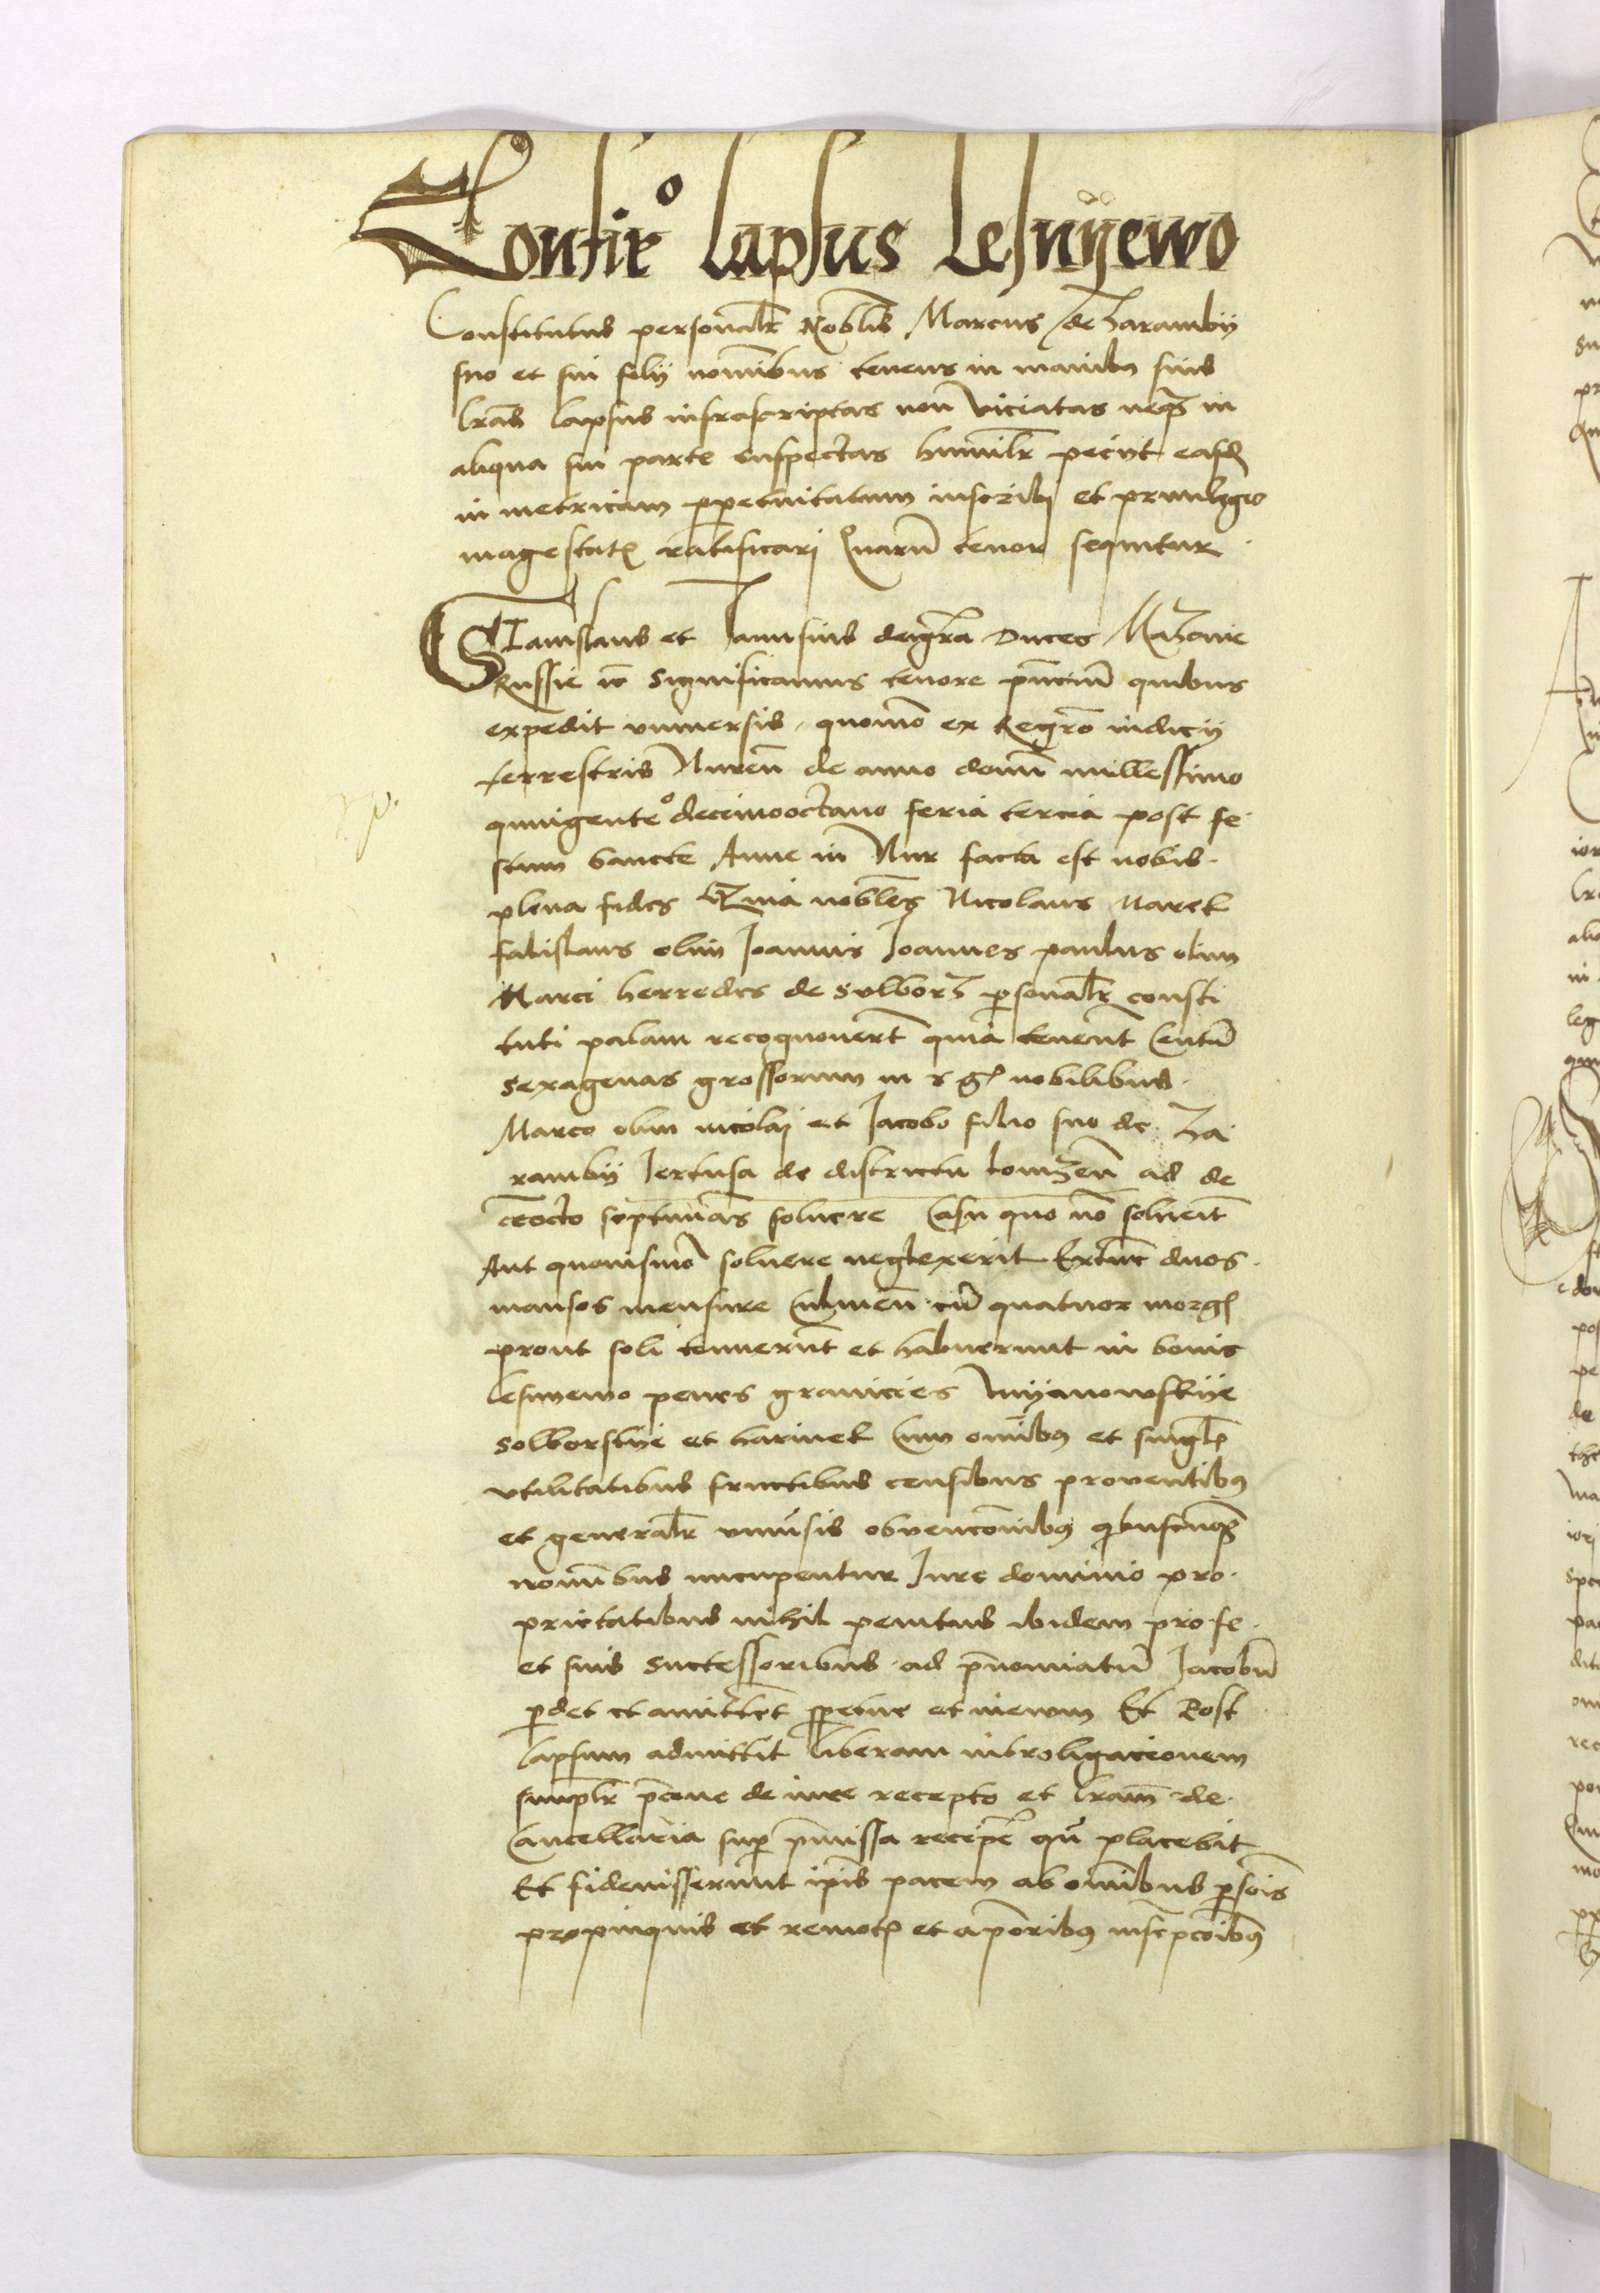 Confirº lapsus Lesnyewo
Constitutus personalr Noblis Marcus de Zarambij
suo et sui filij nominibus tenens in manibus suis
lras lapsus infrascriptas non viciatas neqz in
aliqua sui parte suspectas humilr peciit easd
in metricam perpetuitatum inscribi et privilegio
magestatis ratificari Quarum tenor sequitur
Stanislaus et Janusius dei gra Duces Mazovie
Russie ic Significamus tenore pntium quibus
expedit universis quomo ex Regro iudicij
terrestris Nuren de anno domi millessimo
quingentº decimooctavo feria tercia post fe
stum Sancte Anne in Nur facta est nobis
plena fides Quia nobles Nicolaus Naret
fabislaus olim Joannis Joannes paulus olim
Marci herredes de Sulborz personalr consti
tuti palam recognovert quia tenent Centu
sexagenas grossorum in r gs nobilibus
Marco olim nicolaj et Jacobo filio suo de Za
rambij Jertusa de districtu lomzen ad de
ceocto septimas solvere Casu quo no solveit
Aut quovismo solvere neglexerit Extunc duos
mansos mensure Culmen cu quatuor morgs
prout soli tenuerunt et habuerunt in bonis
lesniewo penes granicies Wyyanowskije
Solborskije et harinet Cum omibus et singlis
utilitatibus fructibus censibus proventibus
et generalr univsis obvencoibus quibuscunqz
nomibus nncupentur Jure dominio pro
prietatibus nihil penitus ibidem pro se
et suis Successoribus ad pnomiatu Jacobu
perdet et amittet perpetue et in evum Et Post
lapsum admittit liberam intreligacionem
simplr pcone de iure recepto et lram de
Cancellaria super pmissa recipere qn placebit
Et fideiusserunt ipis pacem ab omibus persois
propinquis et remotis et a prioribus inscpcoibus